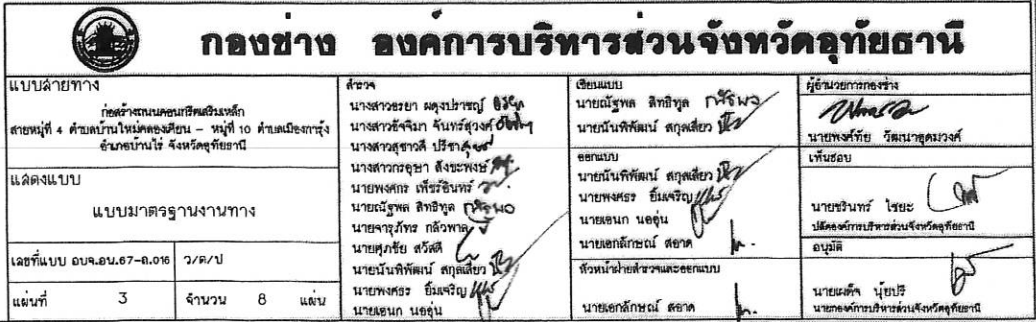 กองช่าง องค์การบริหารส่วนจังหวัดอุทัยธานี
แบบสายทาง
ก่อสร้างถนนคอนกรีตเสริมเหล็ก
สายหมู่ที่ 4 ตำบลบ้านใหม่คลองเคียน - หมู่ที่ 10 ตำบลเมืองการุ้ง
อำเภอบ้านไร่ จังหวัดอุทัยธานี
แสดงแบบ
แบบมาตรฐานงานทาง
เลขที่แบบ อบจ.อน.67-ถ.016 ว/ด/ป
แผ่นที่ 3 จำนวน 8 แผ่น
สำรวจ
นางสาวอรยา ผดุงปราชญ์
นางสาวอัจจิมา จันทร์สุวงศ์
นางสาวสุชาวดี ปรีชา
นางสาวกรอุษา สังขะพงษ์
นายพงศกร เพ็ชร์อินทร์
นายณัฐพล สิทธิทูล
นายจารุภัทร กลัวพาล
นายศุภชัย สวัสดี
นายนันพิพัฒน์ สกุลเสี่ยว
นายพงศธร ยิ้มเจริญ
นายเอนก นออุ่น
เขียนแบบ
นายณัฐพล สิทธิทูล
นายนันพิพัฒน์ สกุลเสี่ยว
ออกแบบ
นายนันพิพัฒน์ สกุลเสี่ยว
นายพงศธร ยิ้มเจริญ
นายเอนก นออุ่น
นายเอกลักษณ์ สอาด
หัวหน้าฝ่ายสำรวจและออกแบบ
นายเอกลักษณ์ สอาด
ผู้อำนวยการกองช่าง
นายพงศ์ทัย วัฒนาอุดมวงศ์
เห็นชอบ
นายชรินทร์ ไชยะ
ปลัดองค์การบริหารส่วนจังหวัดอุทัยธานี
อนุมัติ
นายเผด็จ นุ้ยปรี
นายกองค์การบริหารส่วนจังหวัดอุทัยธานี